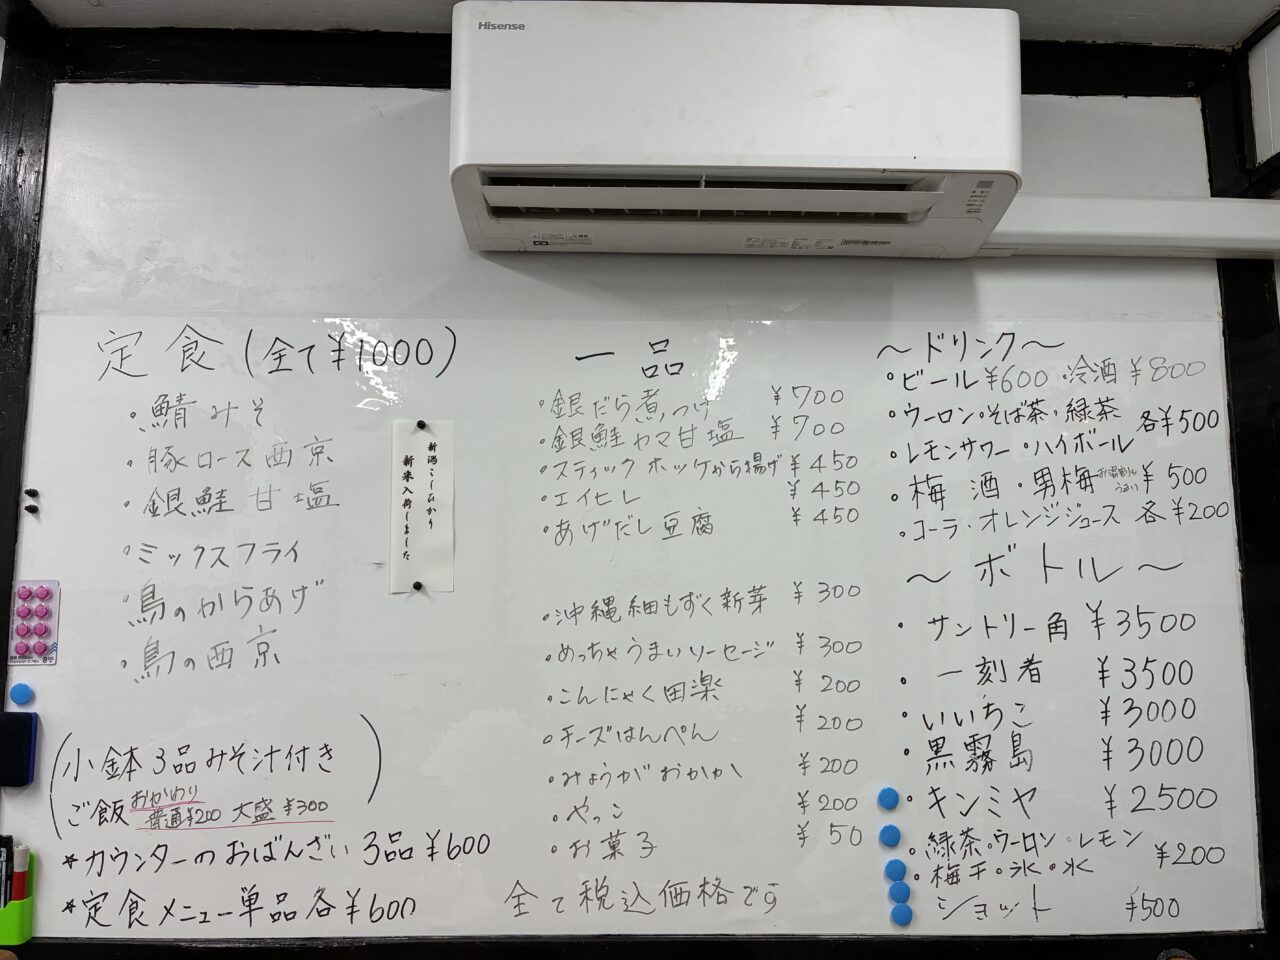 Hisense
定食(全て¥1000)
・鯖みそ
・豚ロース西京
・銀鮭甘塩
・ミックスフライ
・鳥のからあげ
・鳥の西京
新潟こしひかり
新米入荷しました
(小鉢3品みそ汁付き)
ご飯 おかわり 普通¥200 大盛¥300
*カウンターのおばんざい3品¥600
*定食メニュー単品各¥600
一品
・銀だら煮つけ ¥700
・銀鮭カマ甘塩 ¥700
・スティックホッケから揚げ ¥450
・エイヒレ ¥450
・あげだし豆腐 ¥450
・沖縄細もずく新芽 ¥300
・めっちゃうまいソーセージ ¥300
・こんにゃく田楽 ¥200
・チーズはんぺん ¥200
・みょうがおかか ¥200
・やっこ ¥200
・お菓子 ¥50
全て税込価格です
〜ドリンク〜
・ビール¥600・冷酒¥800
・ウーロン・そば茶・緑茶
・レモンサワー・ハイボール 各¥500
・梅酒・男梅 お湯割もうまい ¥500
・コーラ・オレンジジュース 各¥200
〜ボトル〜
・サントリー角 ¥3500
・一刻者 ¥3500
・いいちこ ¥3000
・黒霧島 ¥3000
・キンミヤ ¥2500
・緑茶・ウーロン・レモン
・梅干・氷・水 ¥200
ショット ¥500